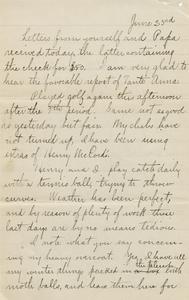 June 23rd
Letters from yourself and Papa
received today, the latter containing
the check for $50. I am very glad to
hear the favorable report of Aunt Anna.
Played golf again this afternoon
after the 5th period. Game not so good
as yesterday but fair. My clubs have
not turned up, I have been using
extras of Henry McCord's.
Henry and I play catch daily
with a tennis ball, trying to throw
curves. Weather has been perfect,
and by reason of plenty of work these
last days are by no means tedious.
I note what you say concern-
ing my heavy overcoat. Yes, I have all
my winter things packed in with
moth balls, and leave them here for